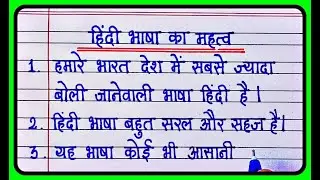 हिंदी भाषा का महत्व
1. हमारे भारत देश में सबसे ज्यादा
बोली जानेवाली भाषा हिंदी है।
2. हिंदी भाषा बहुत सरल और सहज है।
3. यह भाषा कोई भी आसानी